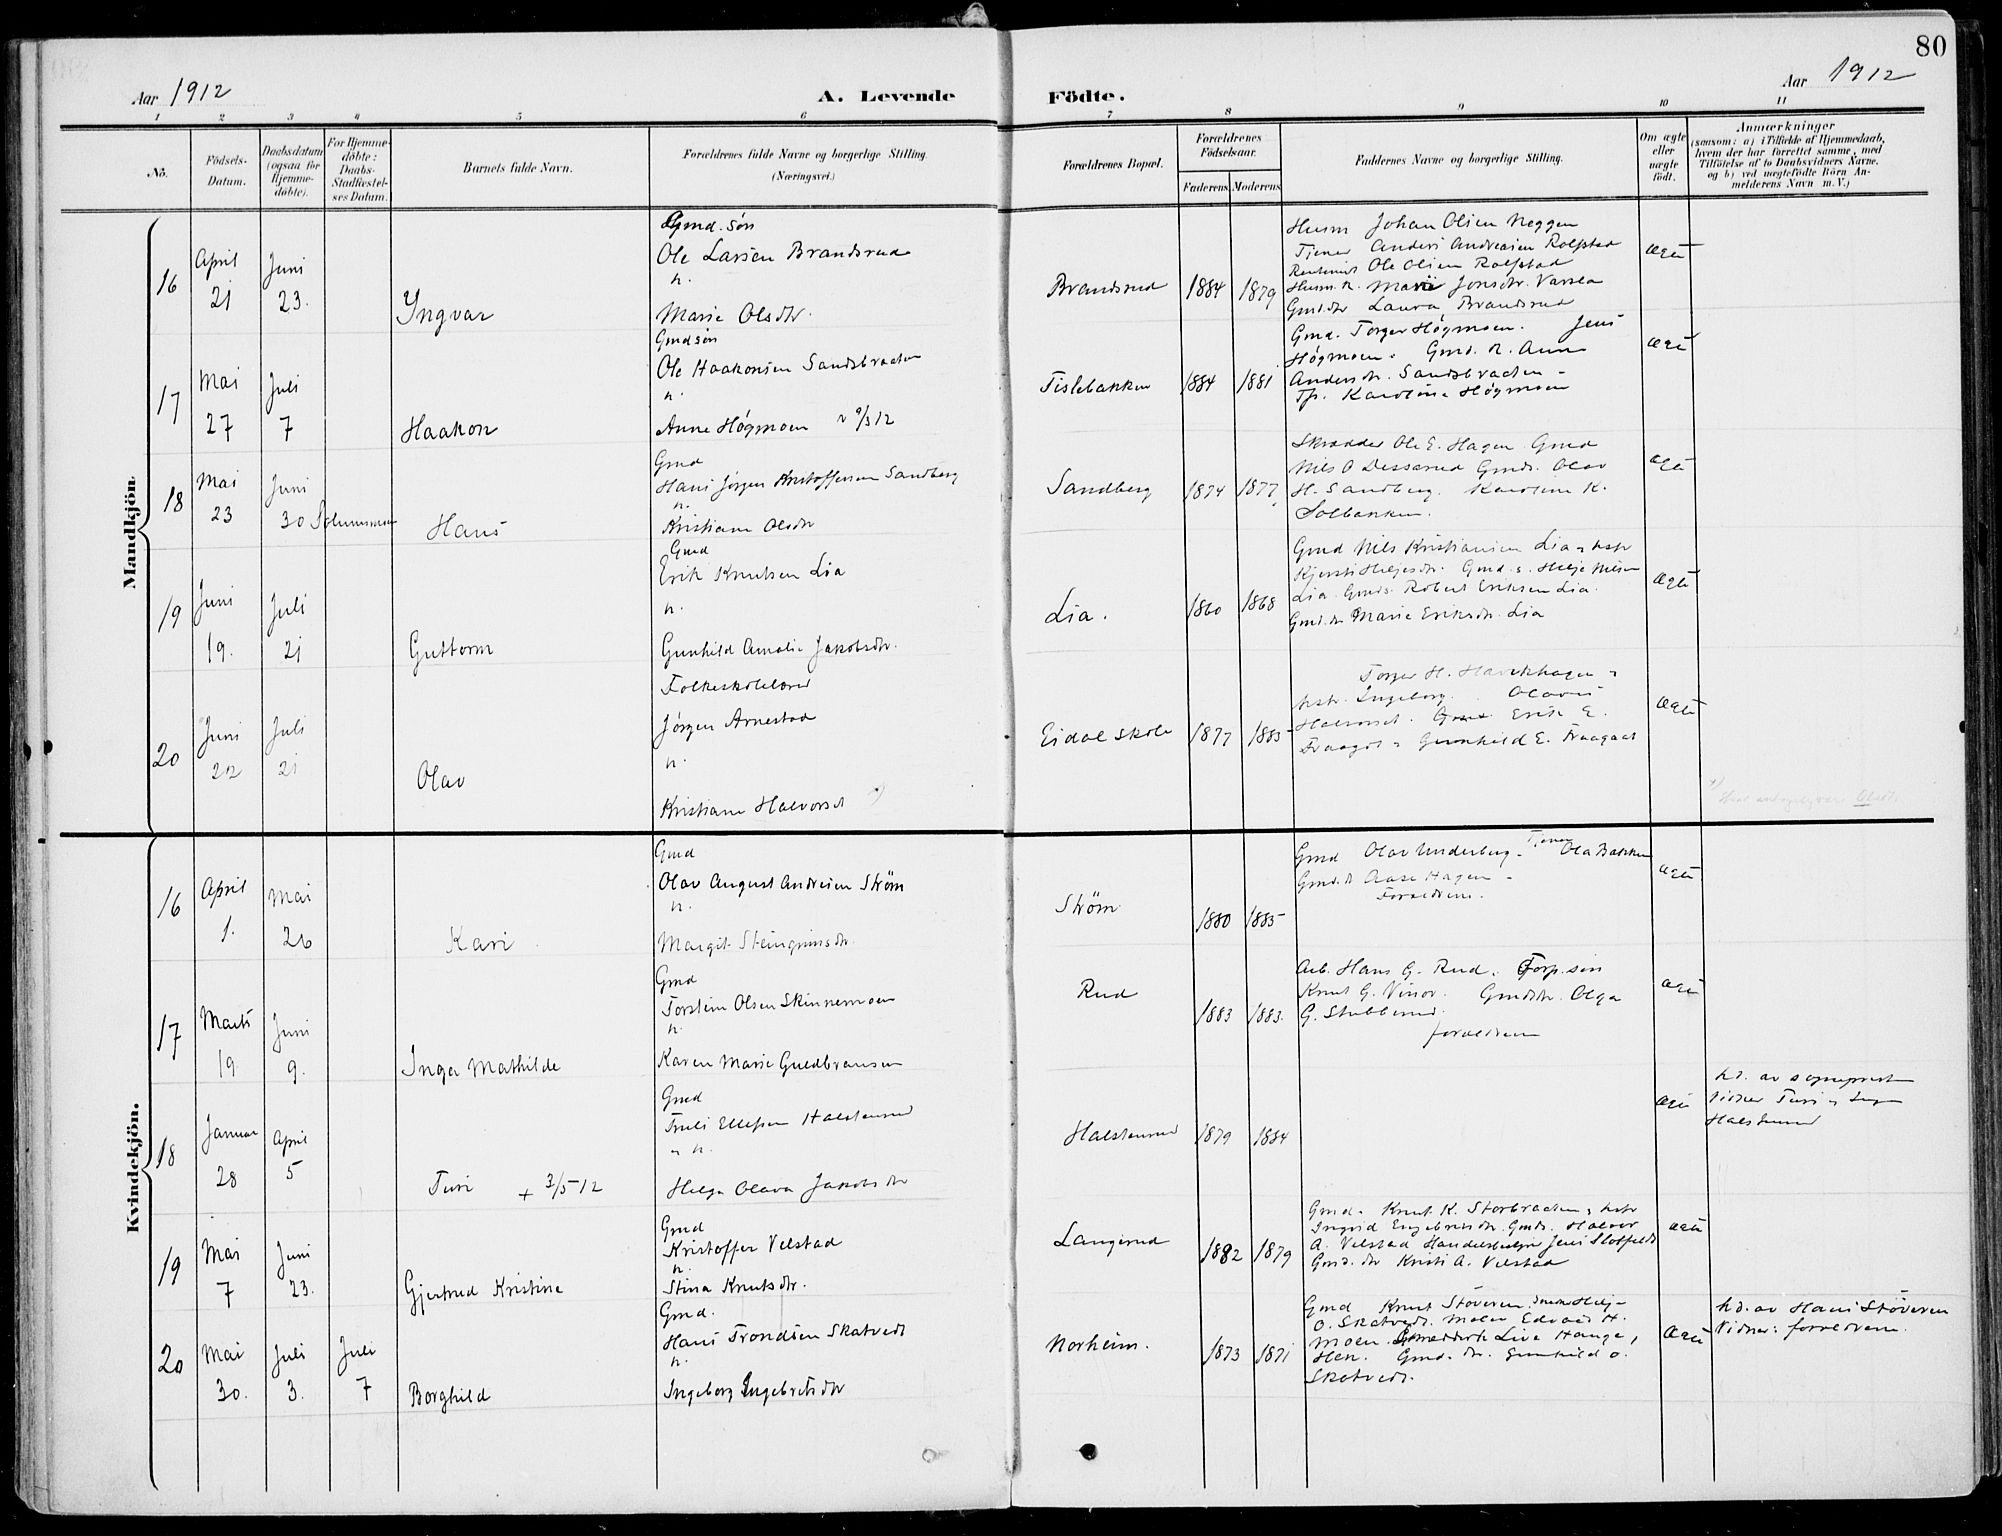 80
Aar 1912
A. Levende
Födte.
Aar 1912
1 2 3 4 5 6 7 8 9 10 11
No.
Födsels-
Datum.
Daabsdatum
(ogsaa for
Hjemme-
döbte).
For Hjemme-
döbte:
Daabs-
Stadfæstel-
ses Datum.
Barnets fulde Navn.
Forældrenes fulde Navne og borgerlige Stilling.
(Næringsvei.)
Forældrenes Bopæl.
Forældrenes
Födselsaar.
Faderens Moderens
Faddernes Navne og borgerlige Stilling.
Om ægte
eller
uægte
født.
Anmærkninger
(saasom: a) i Tilfælde af Hjemmedaab,
hvem der har forrettet samme, med
Tilföielse af to Daabsvidners Navne,
og b) ved uægtefödte Börn An-
melderens Navn m. V.)
Mandkjön.
16
April
21
Juni
23.
Ingvar
Gmd. søn
Ole Larsen Brandsrud
h.
Marie Olsdtr.
Brandsrud
1884 1879
Husm Johan Olsen Neggen
Tjener Anders Andreasen Rolfstad
Ole Olsen Rolfstad
Husm. k. Marie Jonsdtr.
Gmd.dtr Laura Brandsrud
ægte
17
Mai
27
Juli
7
Haakon
Gmdsøn
Ole Haakonsen Sandsbraaten
h.
Anne Høgmoen v 9/3 12
Tislebakken
1884 1881
Gmd. Torger Høgmoen. Jens
Høgmoen. Gmd. k. Anne
Andersdtr. Sandsbraaten -
Tp. Karoline Høgmoen
ægte
18
Mai
23
Juni
30
Hans
Gmd
Hans Jørgen Kristoffersen Sandberg
h.
Kristiane Olsdtr
Sandberg
1874 1877
Skrædder Ole E. Hagen Gmd
Nils O Desserud Gmds. Olav
H. Sandberg. Karoline K.
Solbakken.
ægte
19
Juni
19.
Juli
21
Guttorm
Gmd
Erik Knutsen Lia
h.
Gunhild Amalie Jakobsdtr.
Lia.
1860 1868
Gmd Nils Kristiansen Lia, hstr
Kjersti Helgesdtr. Gmd. s. Helge Nilsen
Lia. Gmds. Robert Eriksen Lia.
Gmd. dtr Marie Eriksdtr. Lia
ægte
20
Juni
22
Juli
21
Olav
Folkeskolelærer
Jørgen Arnestad
h.
Kristiane Halvorsd x)
Eidal skole
1877 1885
Torger H.
hstr. Ingeborg. Olava
Halvorsd. Gmd. Erik E.
Fraagot, Gunhild E. Fraagaat
ægte
x)
Kvindekjön.
16
April
1.
Mai
26
Kari
Gmd
Olav August Andresen Strøm
h.
Margit Steingrimsdtr.
Strøm
1880 1885
Gmd Olav Underberg - Tjener Ola Bakken
Gmd. d Aase Hagen -
Forældrene.
ægte
17
Marts
19
Juni
9.
Inga Mathilde
Gmd
Torstein Olsen Skinnemoen
h.
Karen Marie Guldbransen
Rud
1883 1883.
Arb. Hans G. Rud. Torp. søn
Knut G. Vinor. Gmdsdtr. Olga
G. Stubberud.
forældrene
ægte
18
Januar
28
April
5
Turi + 3/5 12
Gmd
Truls Ellefsen Halstensrud
h.
Helga Olava Jakobsdtr
Halstensrud
1879 1884
ægte
hd. av sogneprest
vidner Turi , Inga
Halstensrud
19
Mai
7
Juni
23.
Gjertrud Kristine
Gmd
Kristoffer Velstad
h.
Stina Knutsdtr.
Langerud
1882 1879
Gmd. Knut K. Storbraaten, hstr
Ingrid Engebretsdtr. Gmds. Halvor
A. Velstad Handelsbetjent Jens Slotfeldt
Gmd. dtr Kristi A. Velstad
ægte
20
Mai
30.
Juli
3.
Juli
7
Borghild
Gmd.
Hans Trondsen Skatvedt
h.
Ingeborg Ingebretsdtr
Norheim.
1873 1871
Gmd Knut Støveren. Helge
O. Skatvedt. Maler Edvard H.
Moen. Live Hauge,
Hen. Gmd. dtr. Gunhild O.
Skatvedt.
ægte
hd. av Hans Støveren
Vidner: forældrene.